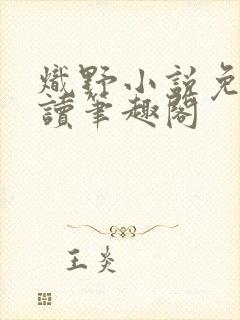 熾野小說免
讀筆趣閣
王炎